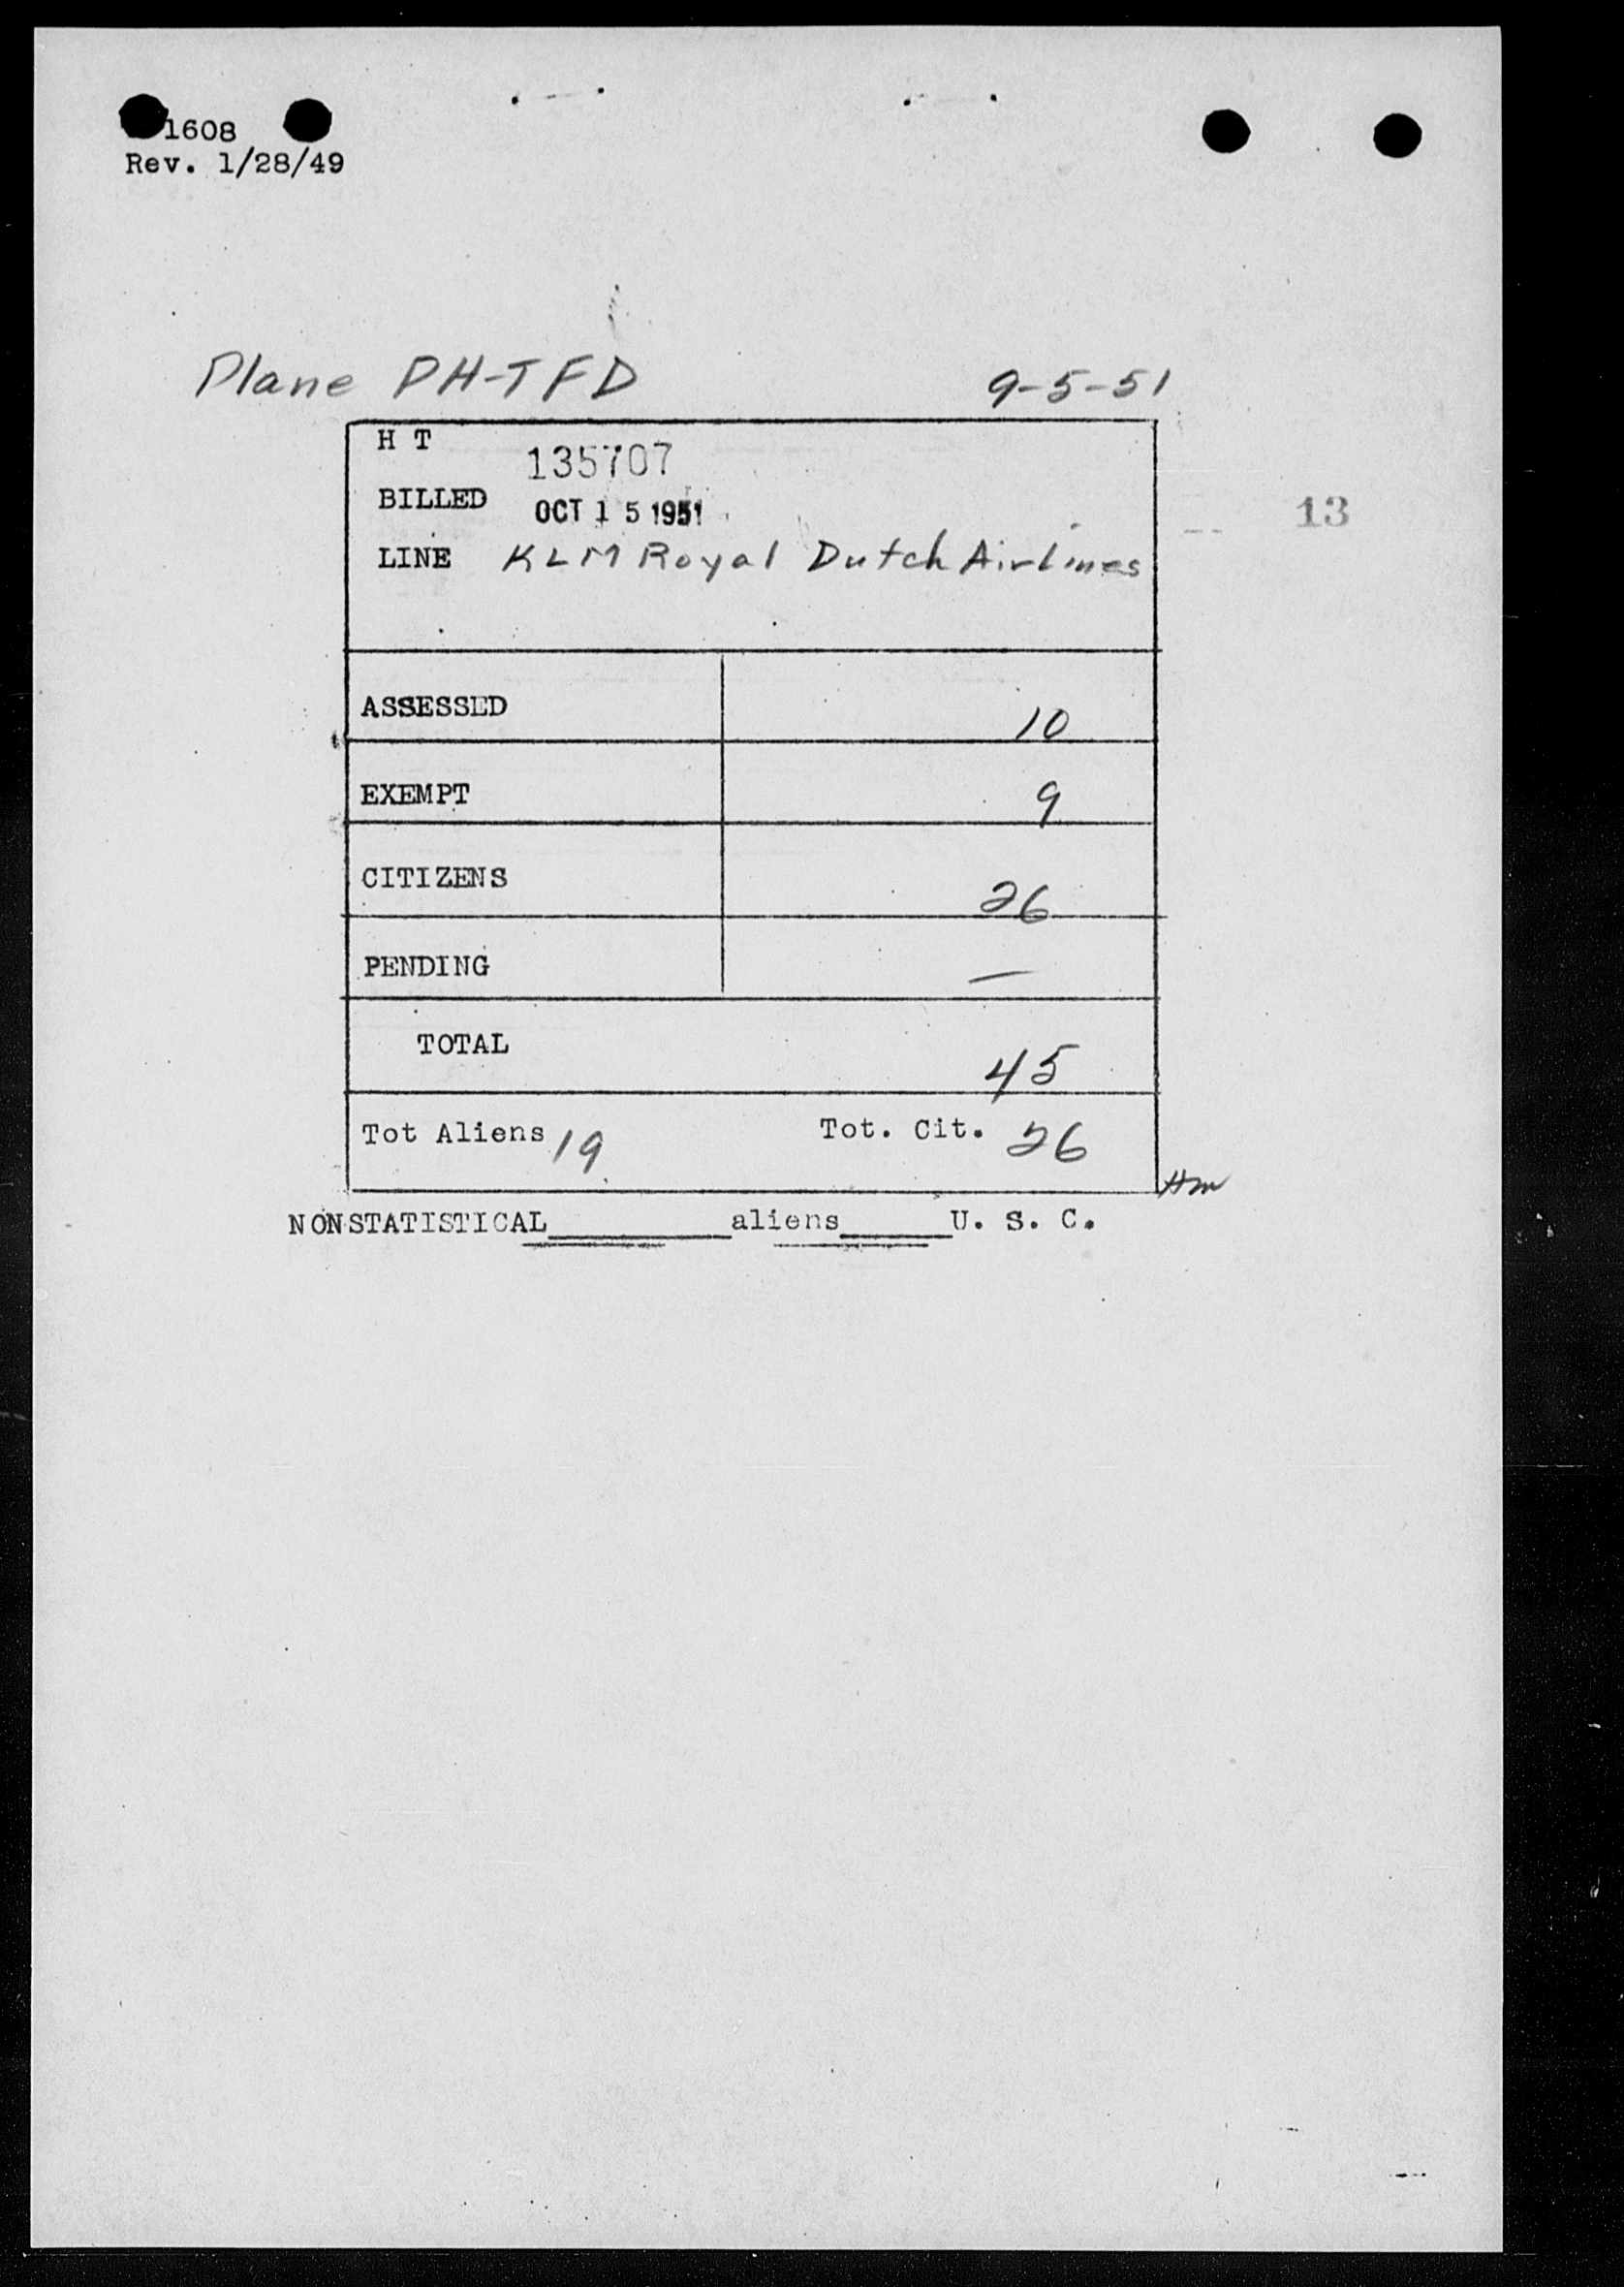 1608
Rev. 1/28/49
Plane PH-TFD 9-5-51
H T 135707
BILLED OCT 15 1951
13
LINE KLM Royal Dutch Airlines
ASSESSED 10
EXEMPT 9
CITIZENS 26
PENDING —
TOTAL 45
Tot Aliens 19 Tot. Cit. 26
Hm
NONSTATISTICAL________aliens_____U. S. C.